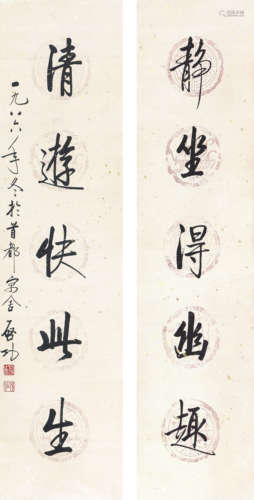 静坐得幽趣
清遊快此生
一九八六年冬於首都寓舍 启功